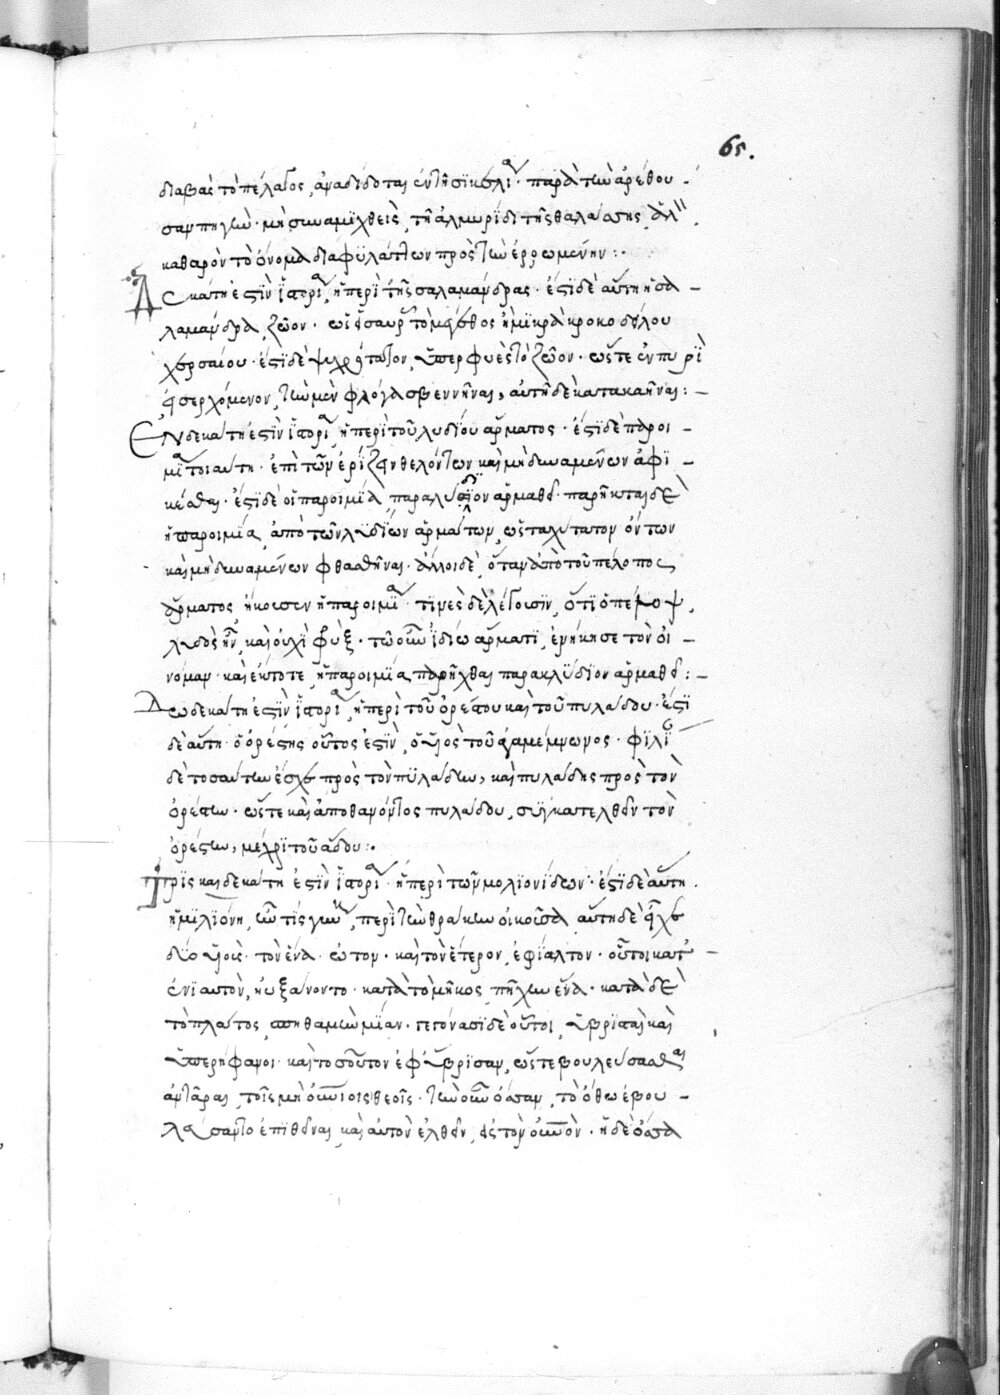 65.
διαβὰς τὸ πέλαγος, ἀναδίδοται ἐν τῆ σϊκελί^α παρὰ τὼ ἀρέθου
σαν πηγὼ· μὴ σὺναμϊχθεὶς τῆ ἁλμυρίδι τῆς θαλάσσης, ἀλ"
καθαρὸν τὸ ὄνομα διαφϋλάττων πρὸς τὼ ἐρρωμένην:·
Δεκάτη ἐςὶν ἱστορί^α ἡ περὶ τῆς σαλαμάνδρας· ἐςὶ δὲ αὕτη ἡ σα –
λαμάνδρα ζῶον· ὡς εἶ σαυρ τὸ μέγεθος ἢ μϊκρὰ κροκοδείλου
χερσαίου· ἐςὶ δὲ ψυχρότατον ὑπερφυὲς τὸ ζῶον· ὥςτε ἐν πυρὶ
εἰσερχόμενον, τὼ μὲν φλόγα σβεννῆναι, αὐτὴ δὲ κατακαῆναι: –
Ἑνδεκάτη ἐςὶν ἱστορί^α ἡ περὶ τοῦ λυδίου ἅρματος· ἐςὶ δὲ παροι –
μῖ^α τοιαύτη· ἐπὶ τῶν ἐρίζειν θελόντων καὶ μὴ δυναμένων ἀφϊ –
κέσθαι· ἐςὶ δὲ οἱ παροιμία, παρὰ λύδϊον ἅρμα θεῖ· παρῆκται δὲ
ἡ παροιμία ἀπὸ τῶν λυδίων ἁρμάτων, ὡς ταχυτάτων ὄντων
καὶ μὴ δυναμένων φθασθῆναι· ἄλλοι δὲ, ὅταν ἀπὸ τοῦ πέλοπος
ἅρματος ἤκουσεν ἡ παροιμί^α· τϊνὲς δὲ λέγουσϊν, ὅτϊ ὁ πέλοψ,
λυδὸς ἦν, καὶ οὐχὶ φρὺξ· τῶ οὖν ἰδίω ἅρματϊ, ἐνήκησε τὸν οἰ –
νόμαν· καὶ ἔκτοτε ἡ παροιμία παρῆχθαι παρακλύδϊον ἅρμα θεῖ: –
Δωδεκάτη ἐςὶν ἱστορί^α ἡ περὶ τοῦ ὀρέστου καὶ τοῦ πυλάδου· ἐςὶ
δὲ αὕτη· ὁ ὀρέςης οὗτος ἐςὶν, ὁ υἱὸς τοῦ ἀγαμέμνωνος· φϊλί
δὲ τοσαύτω ἔσχε πρὸς τὸν πϋλάδω, καὶ πυλάδης πρὸς τὸν
ὀρέστω· ὥςτε καὶ ἀποθανόντος πυλάδου, συγκατελθεῖν τὸν
ὀρέςω, μέχρι τοῦ ἅδου:·
Τρὶς καιδεκάτη ἐςὶν ἱστορί^α· ἡ περὶ τῶν μολιονίδων· ἐςὶ δὲ αὕτη·
ἡ μϊλιόνη, ὤν τίς γυν^η, περὶ τὼ θράκω οἰκοῦσα, αὕτη δὲ εἶχε
δύο υἱοὺς· τὸν ἕνα ὦτον· καὶ τὸν ἕτερον, ἐφϊάλτον· οὗτοι κατ' –
ἐνϊαυτὸν, ηὐξάνοντο· κατὰ τὸ μῆκος, πῆχυν ἕνα· κατὰ δὲ
τὸ πλάτος, σπηθαμὼ μϊαν· γεγόνασϊ δὲ οὗτοι, ὑβρισταὶ καὶ
ὑπερήφανοι· καὶ τοσοῦτον ἐφύβρϊσαν, ὥςτε βουλεύσασθ^αι
ἀντᾶραι τοῖς μὴ οὐνοις θεοῖς· τὼ οὖν ὄσσαν, τὸ ὄθω ἐβου –
λεύσαντο ἐπϊθεῖναι, καὶ αὐτὸν ἐλθεῖν, εἰς τὸν οὐνὸν· ἡ δὲ ὄσσα